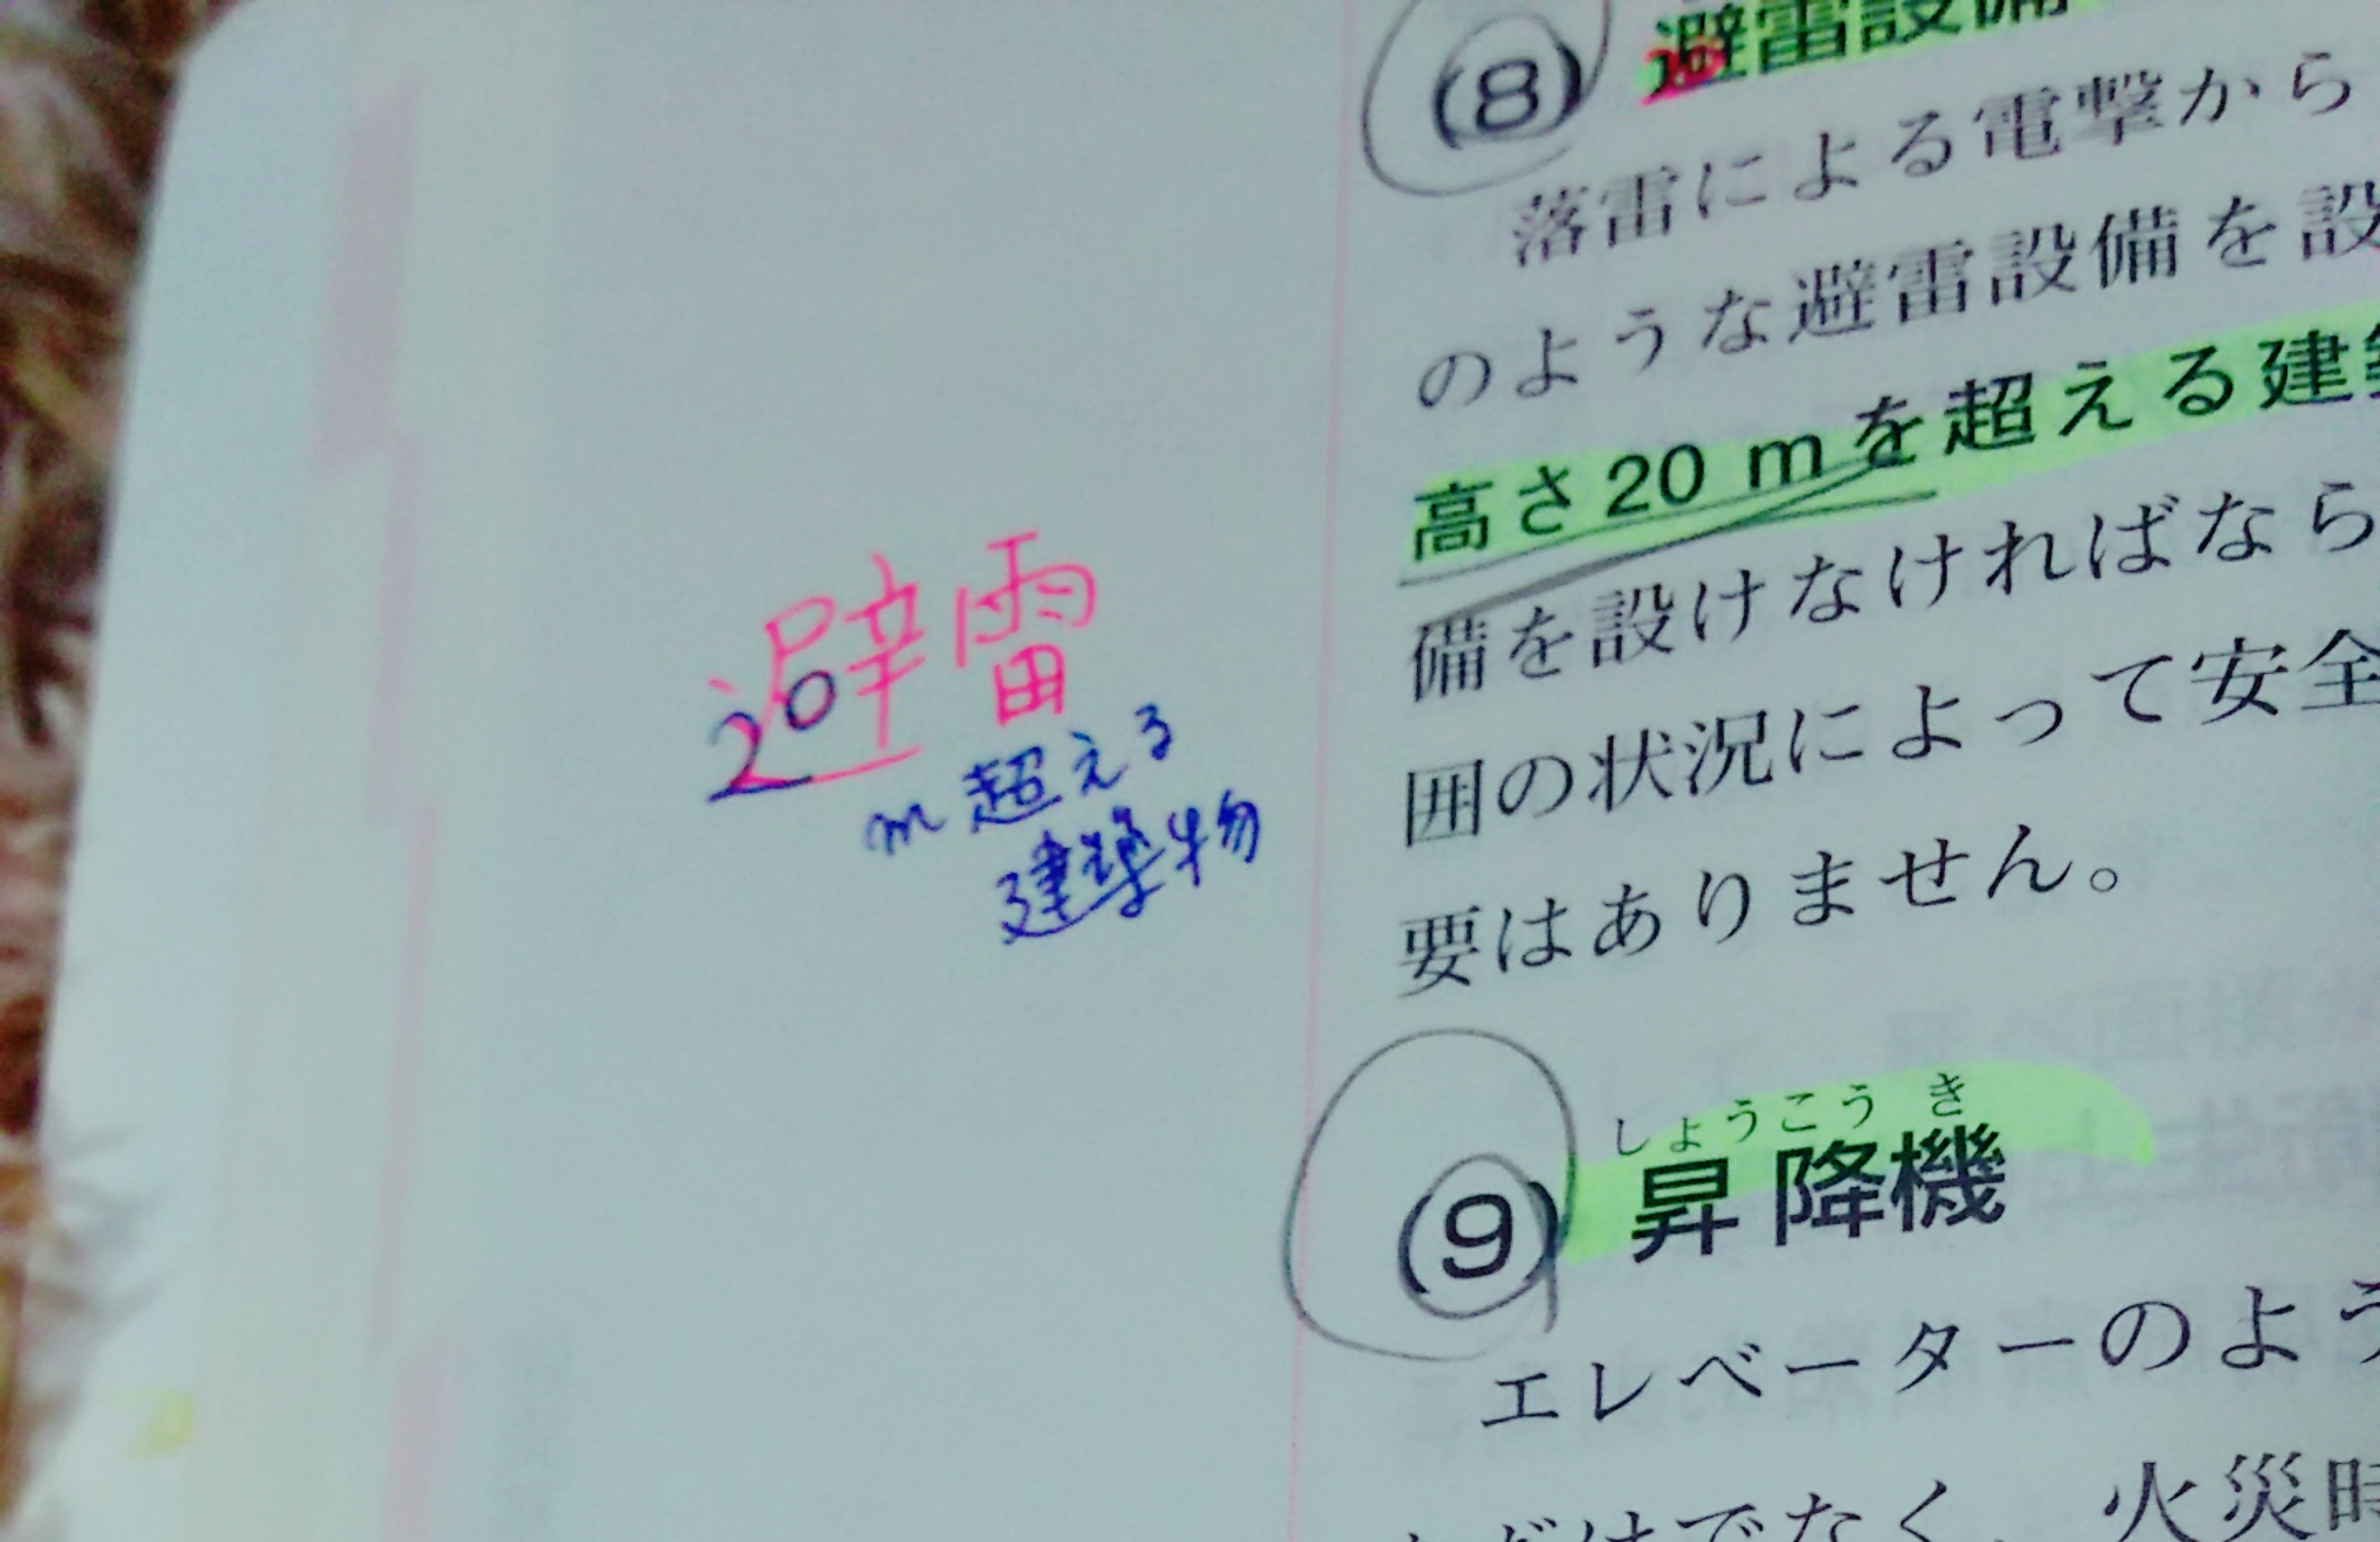 避雷
20
m超える
建築物
(8) 避雷設備
落雷による電撃から
のような避雷設備を設
高さ20 mを超える建築
備を設けなければなら
囲の状況によって安全
要はありません。
しょうこうき
(9) 昇降機
エレベーターのよう
だけでなく、火災時